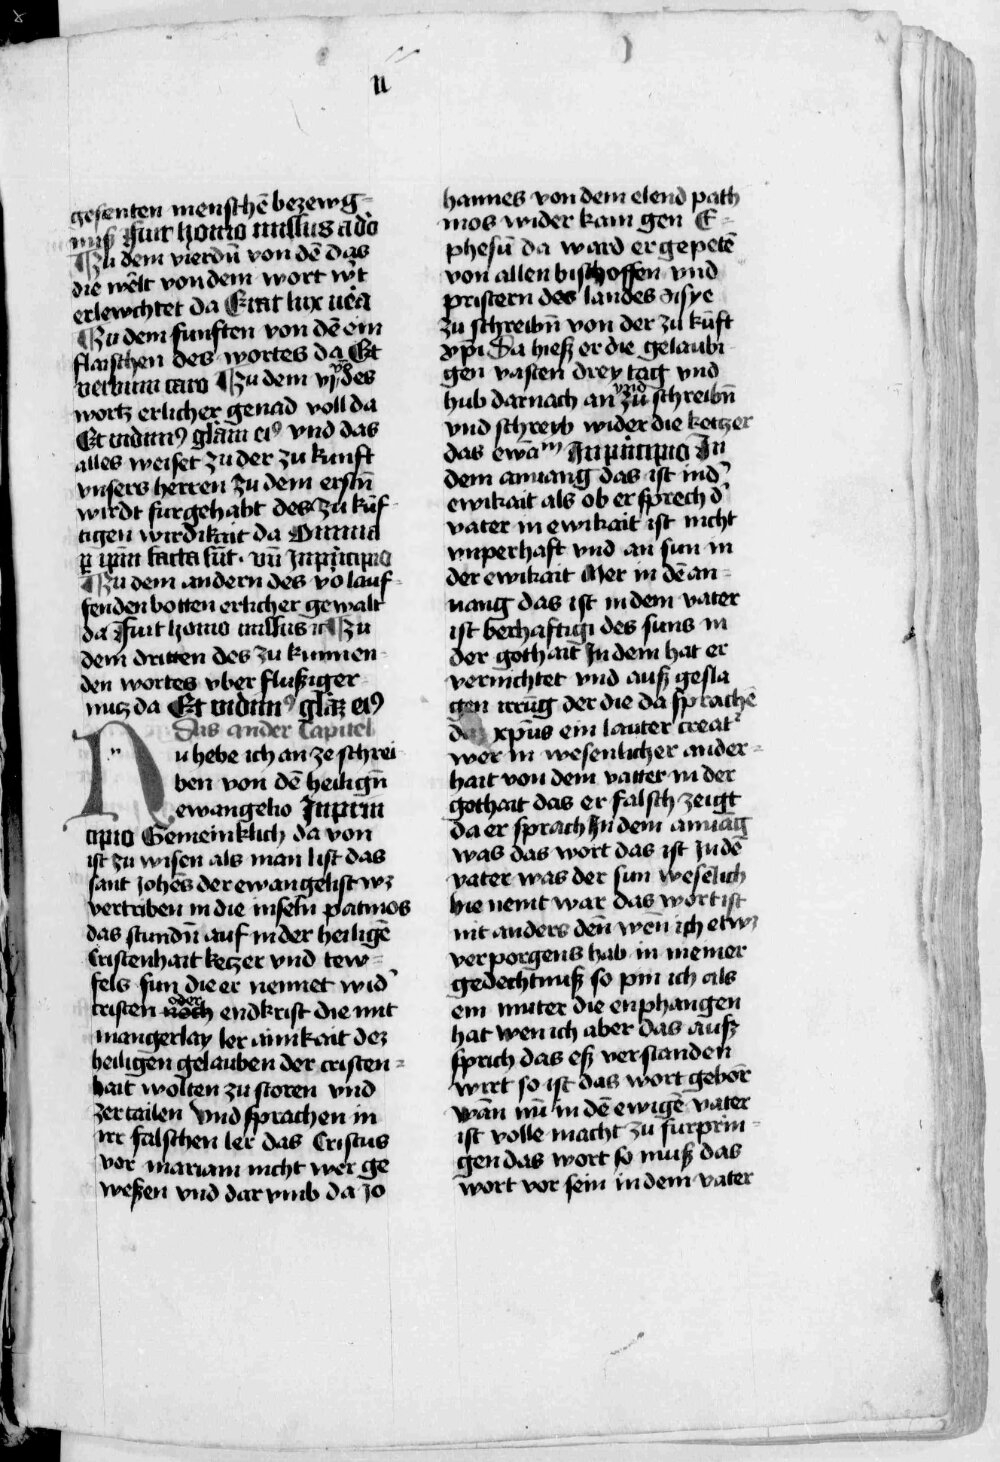 ii
gesenten menschē bezewg-
nuß Fuit homo missus a dō
¶ Zu dem vierdn̄ von dē das
die wēlt von dem wort w't
erlewchtet da Erat lux v̄ea
¶ Zu dem funften von dē ein
flaischen des wortes da Et
verbum caro ¶ Zu dem vj des
wortz erlicher genad voll da
Et vidimꝰ glām eiꝰ vnd das
alles weiset zu der zu kunft
vnsers herren Zu dem erstn̄
wirdt furgehabt des zu kūf-
tigen wirdikait da Omnia
ꝑ ip̄m facta sūt. vn̄ Inprīcipio
¶ Zu dem andern des vo lauf-
fenden botten erlicher gewalt
da Fuit homo missus ¶ Zu
dem dritten des zu kumen-
den wortes vber flußiger
nutz da Et vidimꝰ glāz eiꝰ
Das ander Capitel
Nu hebe ich an ze schrei
ben von dē heilign̄
ewangelio Inprin
cipio Gemeinklich da von
ist zu wisen als man list das
sant Johēs der ewangelist wz
vertriben in die inseln patmos
das stundn̄ auf in der heiligē
Cristenhait ketzer vnd tew-
fels sun die er nennet wid'
cristen noch oder endkrist die mit
mangerlay ler ainikait dez
heiligen gelauben der cristen-
hait wolten zu storen vnd
zertailen vnd sprachen in
irr falschen ler das Cristus
vor mariam nicht wer ge
weßen vnd dar vmb da Jo
hannes von dem elend path
mos wider kam gen E-
phesū da ward er gepetē
von allen bischoffen vnd
pristern des landes Asye
zu schreibn̄ von der zu kūft
xp̄i Da hieß er die gelaubi
gen vasten drey tag vnd
hub darnach an vnd zū schreibn̄
vnd schreyb wider die ketzer
das ewāᵐ Inprīcipio In
dem anuang das ist ind'
ewikait als ob er sprech d'
vater in ewikait ist nicht
vnperhaft vnd an sun in
der ewikait Mer in dē an-
uang das ist in dem vater
ist berhaftigi des suns in
der gothait In dem hat er
vernichtet vnd auß gesla
gen irrūg der die da sprachē
daz xp̄us ein lauter creat'
wer in wesenlicher ander-
hait von dem vatter in der
gothait das er falsch zeigt
da er sprach In dem anuāg
was das wort das ist zu dē
vater was der sun wesēlich
hie nemt war das wort ist
nit anders den̄ wēn ich etwz
verporgens hab in meiner
gedechtnuß so pin ich als
ein muter die enphangen
hat wen ich aber das auß
sprich das eß verstanden
wirt so ist das wort geborr
wān nū in dē ewigē vater
ist volle macht zu furprin-
gen das wort so muß das
wort vor sein in dem vater